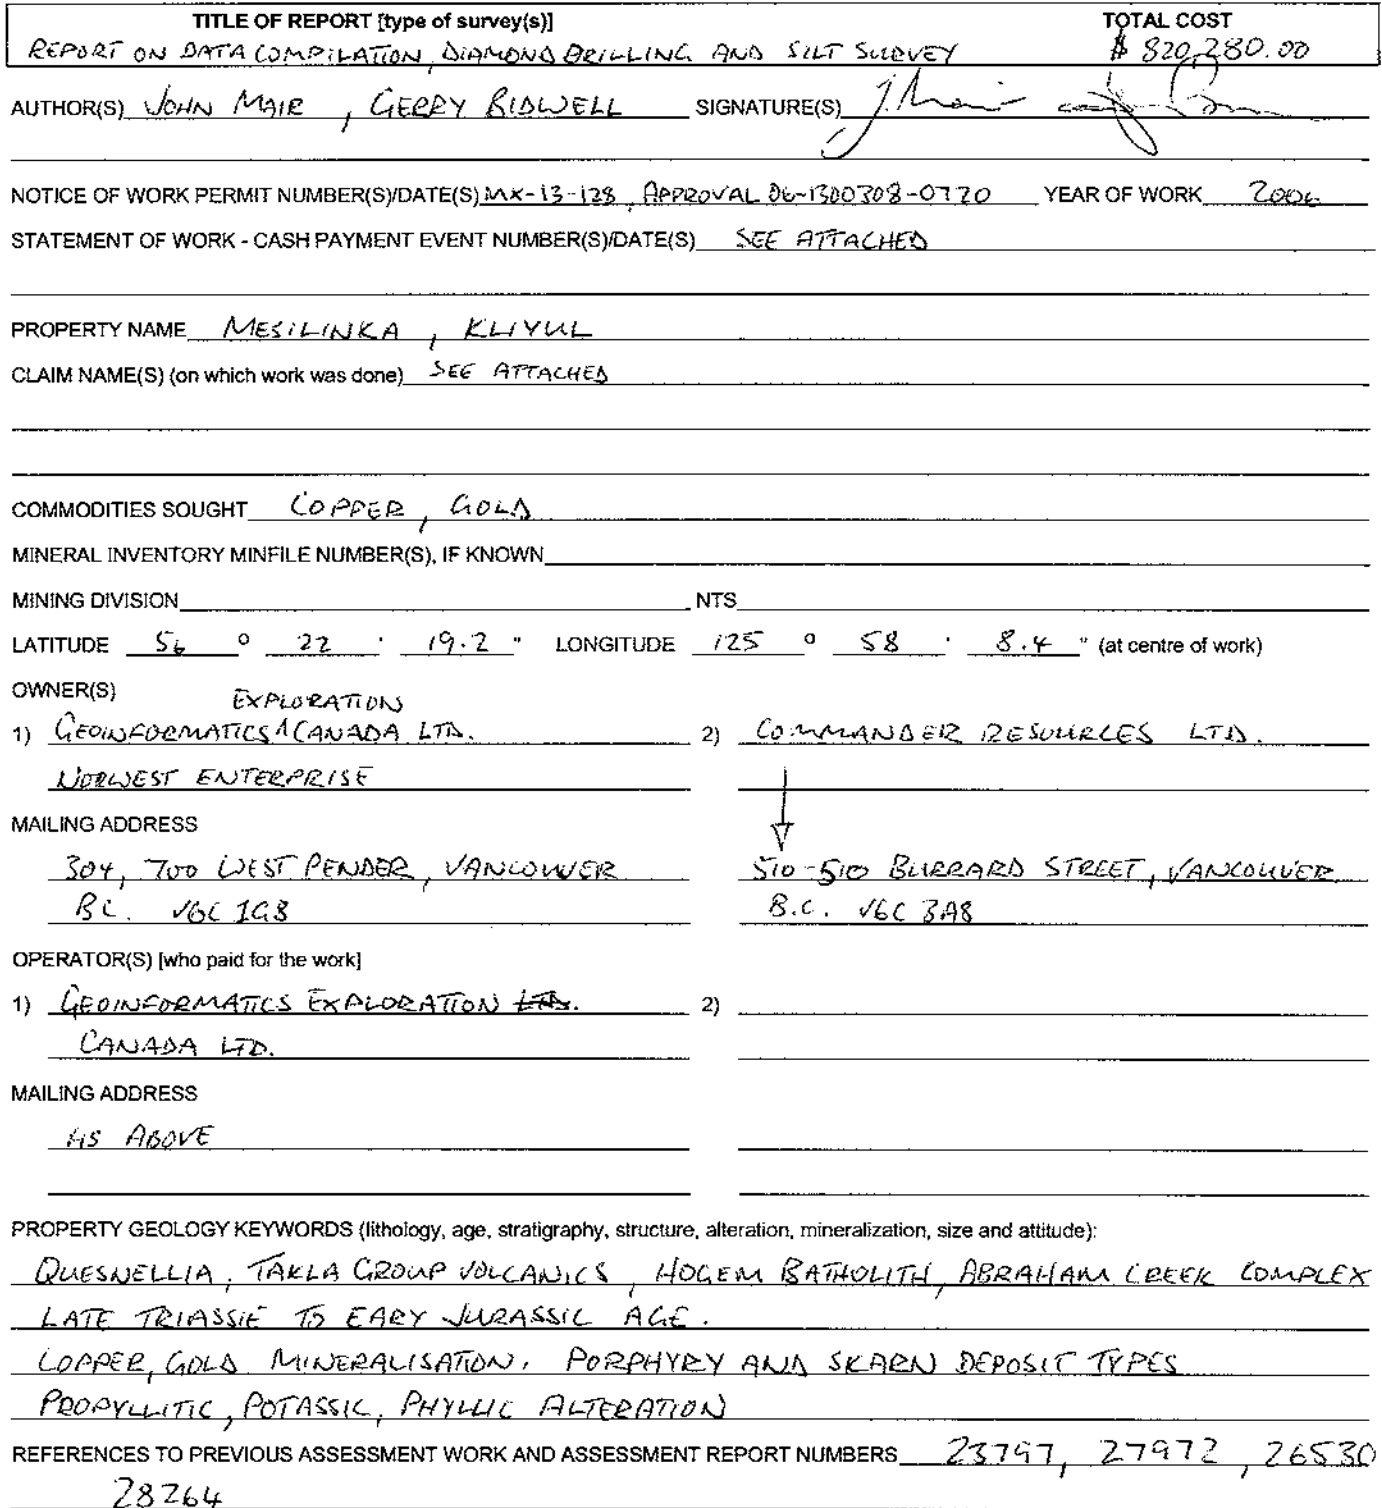 TITLE OF REPORT [type of survey(s)] TOTAL COST
REPORT ON DATA COMPILATION, DIAMOND DRILLING AND SILT SURVEY $ 820,280.00
AUTHOR(S) JOHN MAIR, GERRY BIDWELL SIGNATURE(S)
NOTICE OF WORK PERMIT NUMBER(S)/DATE(S) MX-13-128, APPROVAL 06-1300308-0720 YEAR OF WORK 2006
STATEMENT OF WORK - CASH PAYMENT EVENT NUMBER(S)/DATE(S) SEE ATTACHED
PROPERTY NAME MESILINKA, KLIYUL
CLAIM NAME(S) (on which work was done) SEE ATTACHED
COMMODITIES SOUGHT COPPER, GOLD
MINERAL INVENTORY MINFILE NUMBER(S), IF KNOWN
MINING DIVISION NTS
LATITUDE 56 ° 22 ' 19.2 " LONGITUDE 125 ° 58 ' 8.4 " (at centre of work)
OWNER(S)
EXPLORATION
1) GEOINFORMATICS ^ CANADA LTD. 2) COMMANDER RESOURCES LTD.
NORWEST ENTERPRISE
MAILING ADDRESS
304, 700 WEST PENDER, VANCOUVER 510-510 BURRARD STREET, VANCOUVER
BC. V6C 1G8 B.C. V6C 3A8
OPERATOR(S) [who paid for the work]
1) GEOINFORMATICS EXPLORATION LTD. 2)
CANADA LTD.
MAILING ADDRESS
AS ABOVE
PROPERTY GEOLOGY KEYWORDS (lithology, age, stratigraphy, structure, alteration, mineralization, size and attitude):
QUESNELLIA, TAKLA GROUP VOLCANICS, HOGEM BATHOLITH, ABRAHAM CREEK COMPLEX
LATE TRIASSIE TO EARY JURASSIC AGE.
COPPER, GOLD MINERALISATION. PORPHYRY AND SKARN DEPOSIT TYPES
PROPYLLITIC, POTASSIC, PHYLLIC ALTERATION
REFERENCES TO PREVIOUS ASSESSMENT WORK AND ASSESSMENT REPORT NUMBERS 23797, 27972, 26530
28264